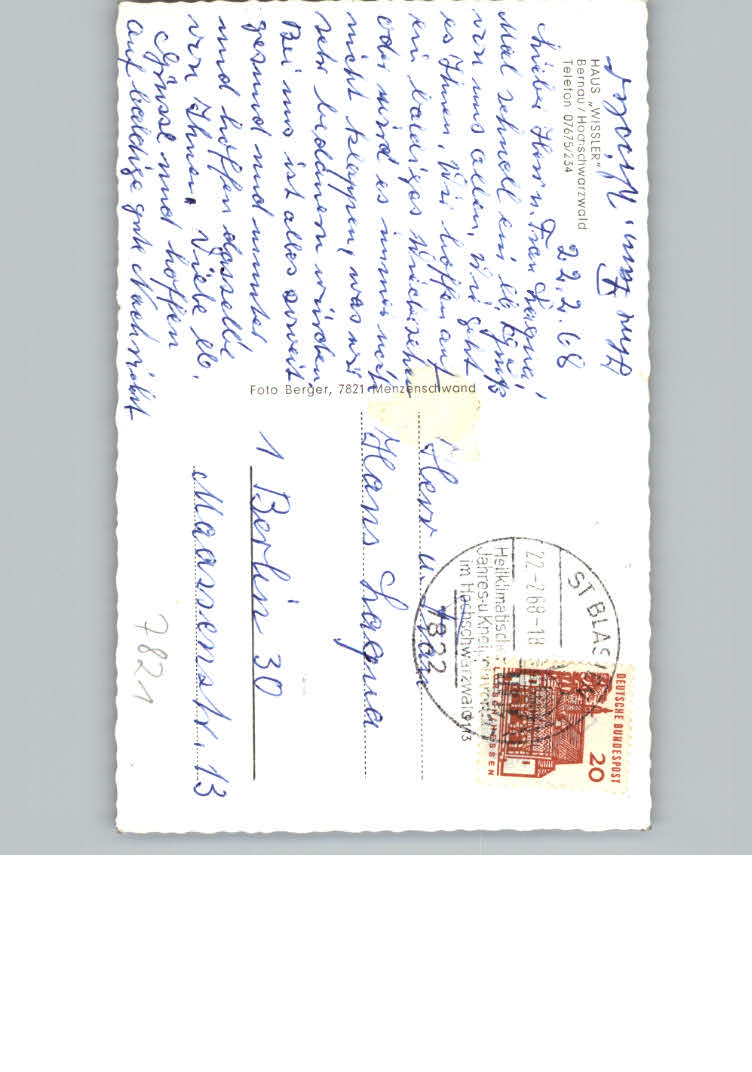 HAUS „WISSLER“
Bernau / Hochschwarzwald
Telefon 07675/234
22.2.68
Lieber Herr u. Frau Lagua,
Mal schnell ein lb. Gruß
von uns allen, wie geht
es Ihnen, wir hoffen auf
ein baldiges Wiedersehen
oder wird es immer noch
nicht klappen, was wir
sehr bedauern würden.
Bei uns ist alles soweit
gesund und munter
und hoffen dasselbe
von Ihnen. Viele lb.
Grüsse und hoffen
auf baldige gute Nachricht
Ihre Fam.
Foto Berger, 7821 Menzenschwand
Herr u. Frau
Hans Lagua
1 Berlin 30
Maassenstr. 13
7821
DEUTSCHE BUNDESPOST
20
LORSCH / HESSEN
ST BLASIEN
22.-2.68-18
Heilklimatisch
Jahres-u. Kneippkurort
im Hochschwarzwald
7822